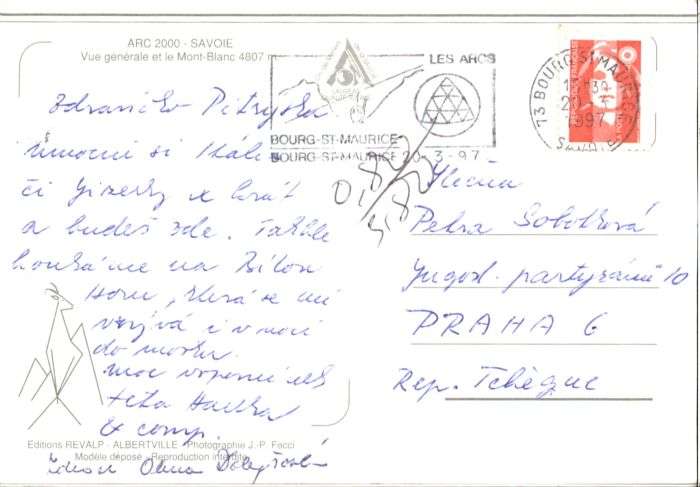 ARC 2000 - SAVOIE
Vue générale et le Mont-Blanc 4807 m
LES ARCS
BOURG-ST-MAURICE
BOURG-ST-MAURICE 20-3-97
73 BOURG-ST-MAURICE
1997
SAVOIE
Zdravíčko Petruška
si
či Jizerky x krát
a budeš zde. Takhle
koukáme na Bílou
Horu, která se mi
vrývá i v noci
do mozku.
Moc vzpomíná
teta Hanka
& comp.
Slečna
Petra Sobotková
Jugosl. partyzánů 10
PRAHA 6
Rep. Tchèque
Editions REVALP - ALBERTVILLE - Photographie J.-P. Facci
Modèle déposé - Reproduction interdite